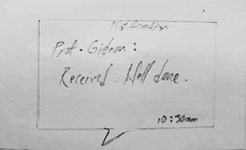 Notification
Prof. Gideon:
Received. Well done.
10:30am